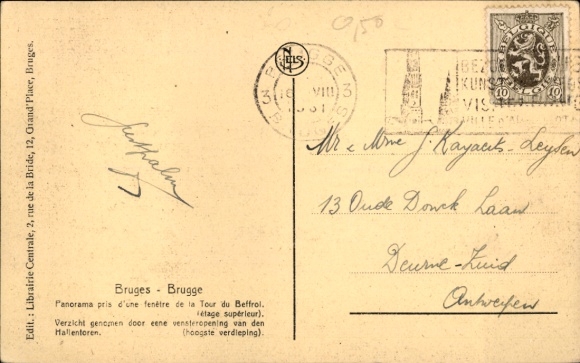 0,50
NELS
BRUGGE
3 16 VIII 3
1931
BRUGES
BELGIQUE
10 10
BELGIË
KUNST
VISITEZ
VILLE D'ART
Mr & Mme J. Kayaerts-Leysen
13 Oude Donck Laan
Deurne-Zuid
Antwerpen
Bruges - Brugge
Panorama pris d'une fenêtre de la Tour du Beffroi.
(étage supérieur).
Verzicht genomen door eene vensteropening van den
Hallentoren. (hoogste verdieping).
Edit.: Librairie Centrale, 2, rue de la Bride, 12, Grand'Place, Bruges.